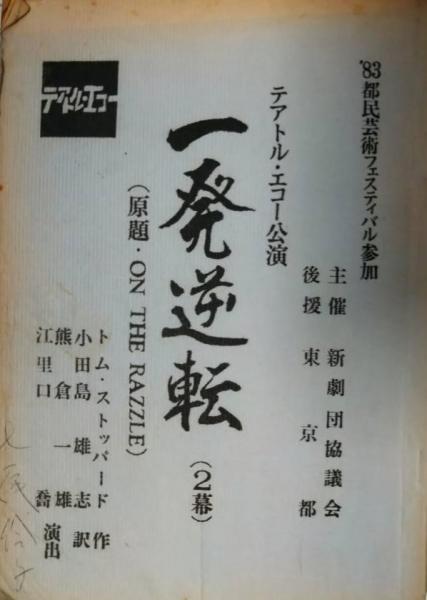 '83都民芸術フェスティバル参加
主催 新劇団協議会
後援 東京都
テアトル・エコー公演
一発逆転
(2幕)
(原題・ON THE RAZZLE)
トム・ストッパード 作
小田島雄志 訳
熊倉一雄
江里口喬 演出
テアトル・エコー